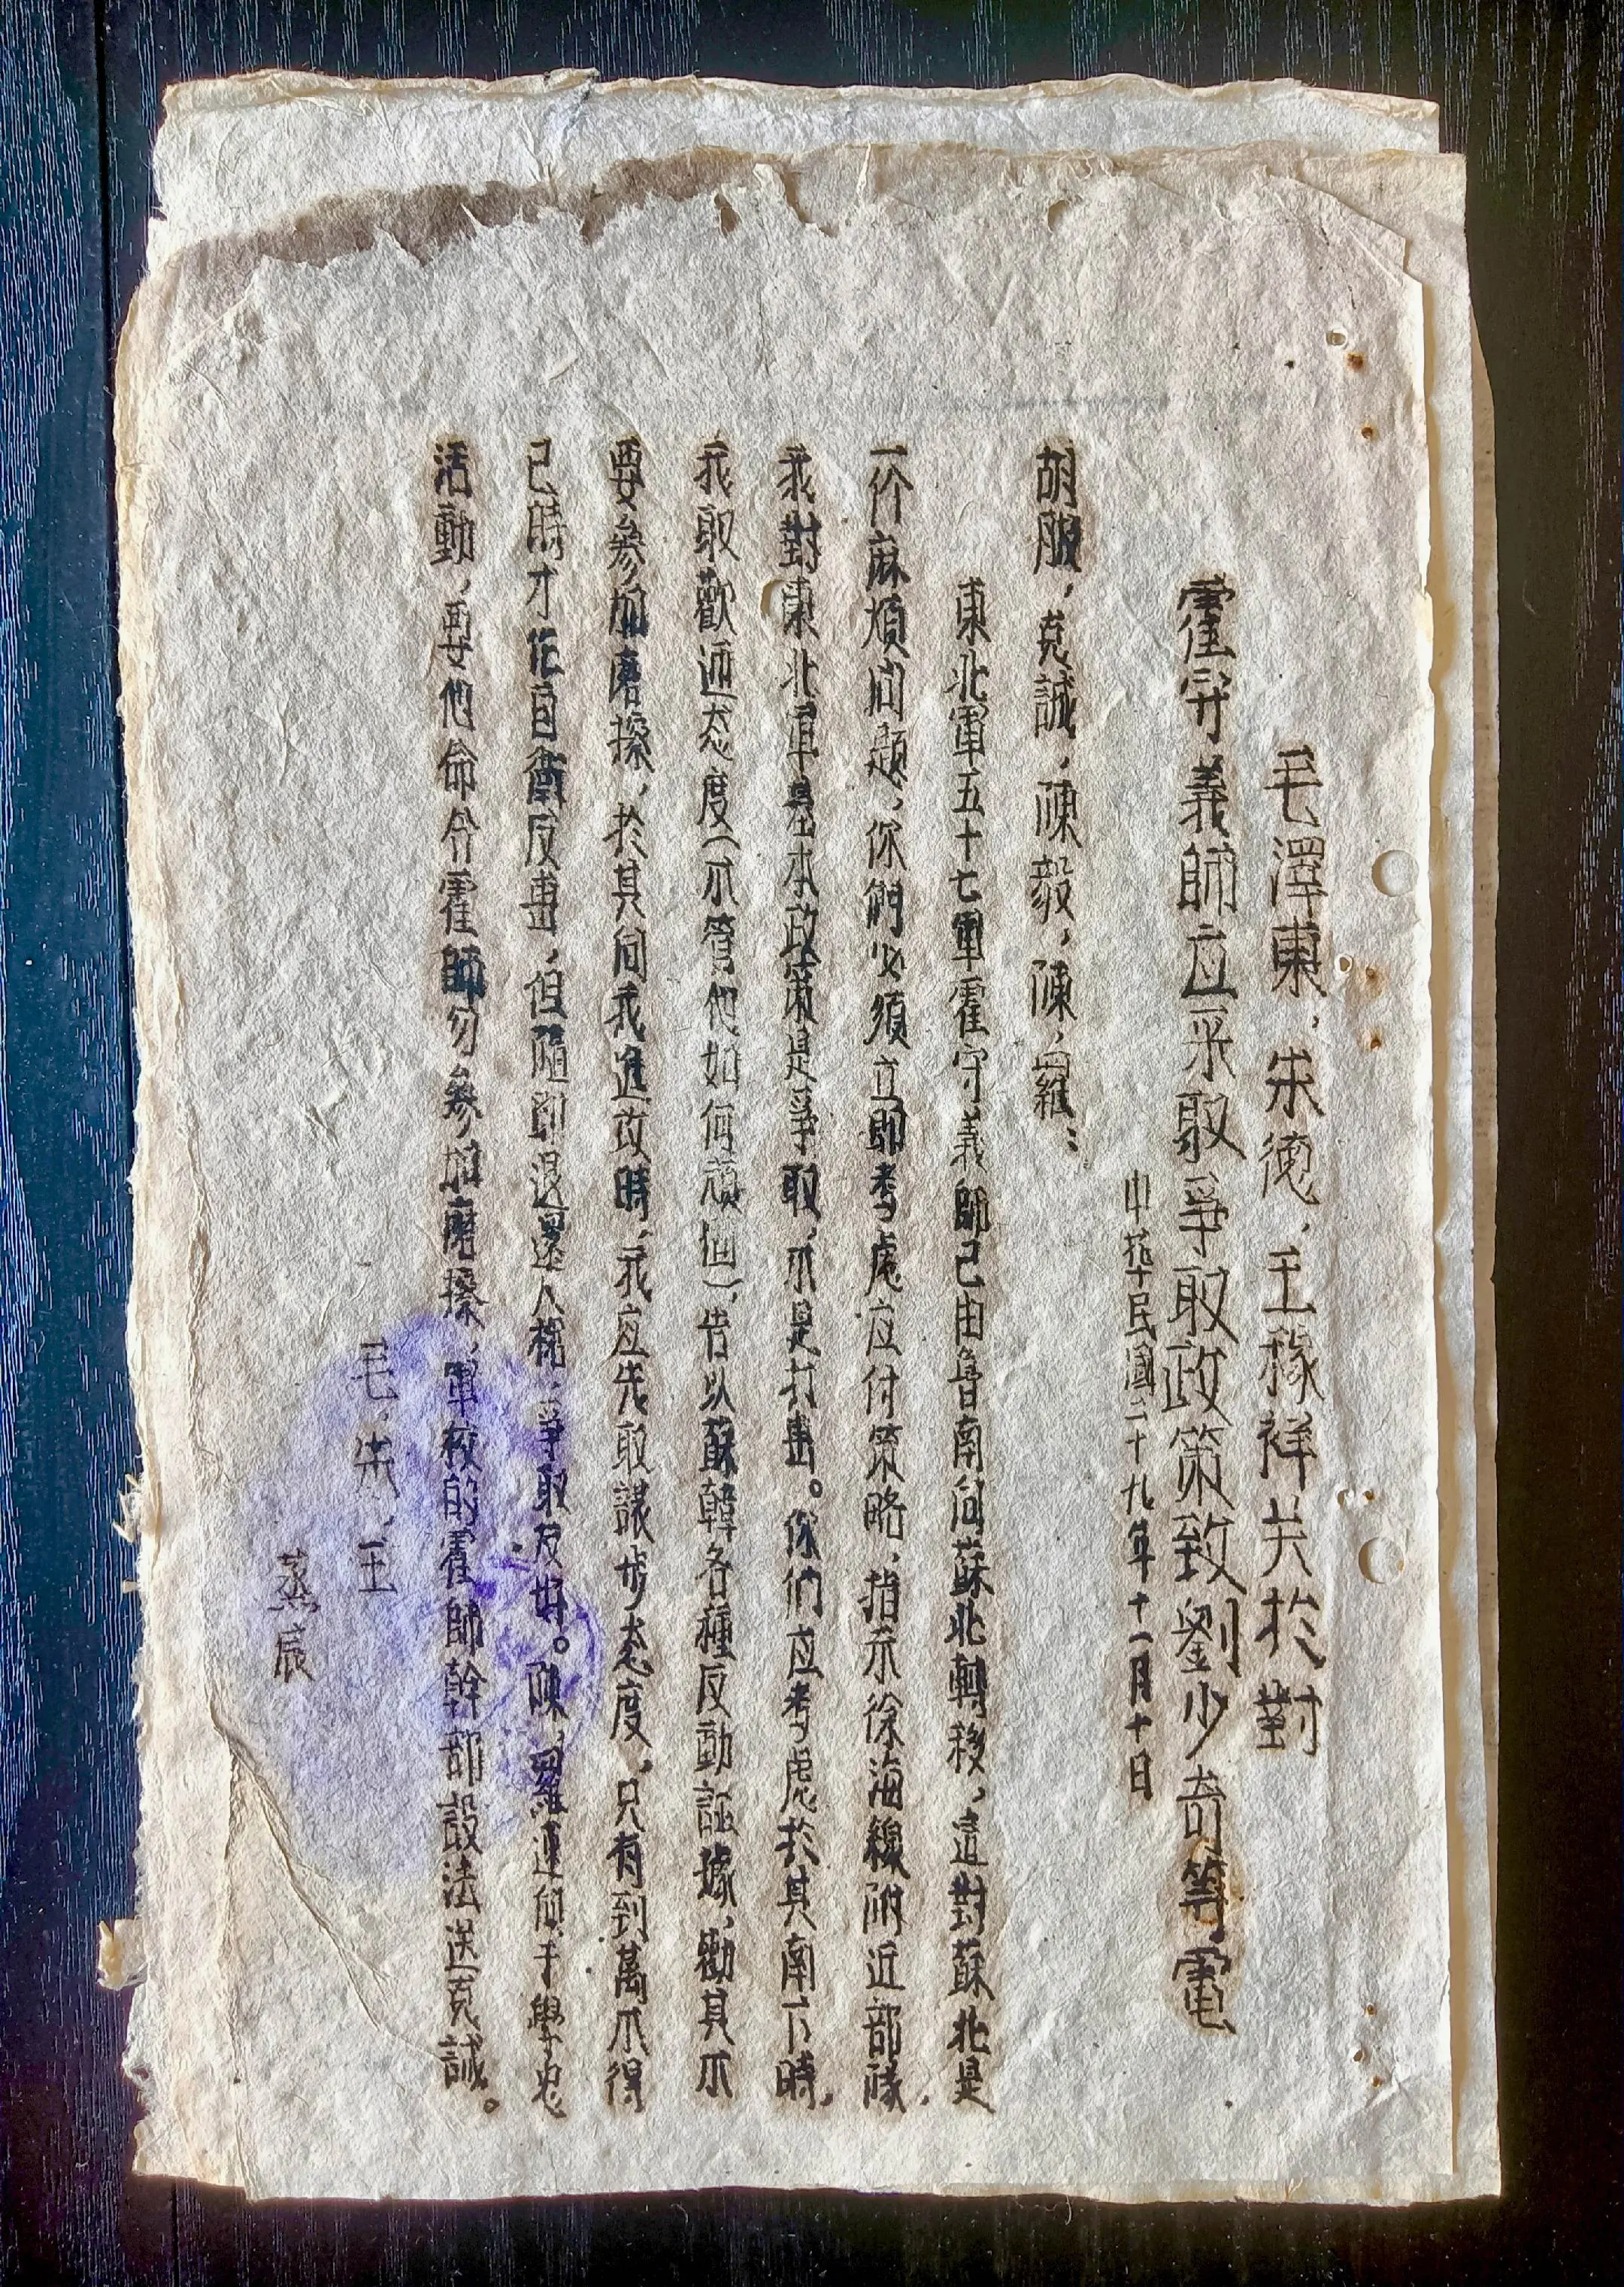 毛澤東，朱德，王稼祥关於對
霍守義師应采取爭取政策致劉少奇等電
中華民國二十九年十一月十日
胡服，克誠，陳毅，陳，羅：
東北軍五十七軍霍守義師已由魯南向蘇北轉移，這對蘇北是
一个麻煩问题，你們必須立即考慮应付策略，指示徐海綫附近部隊，
我對東北軍基本政策是爭取，不是打击。你們应考慮於其南下時，
我取歡迎态度（不管他如何頑固），告以蘇韓各種反動証據，勸其不
要參加磨擦，於其向我進攻時，我应先取讓步态度，只有到萬不得
已時才作自衛反击，但隨即退還人槍，爭取友好。陳，羅速向于學忠
活動，要他命令霍師勿參加磨擦，軍校的霍師幹部設法送克誠。
毛，朱，王
蒸辰